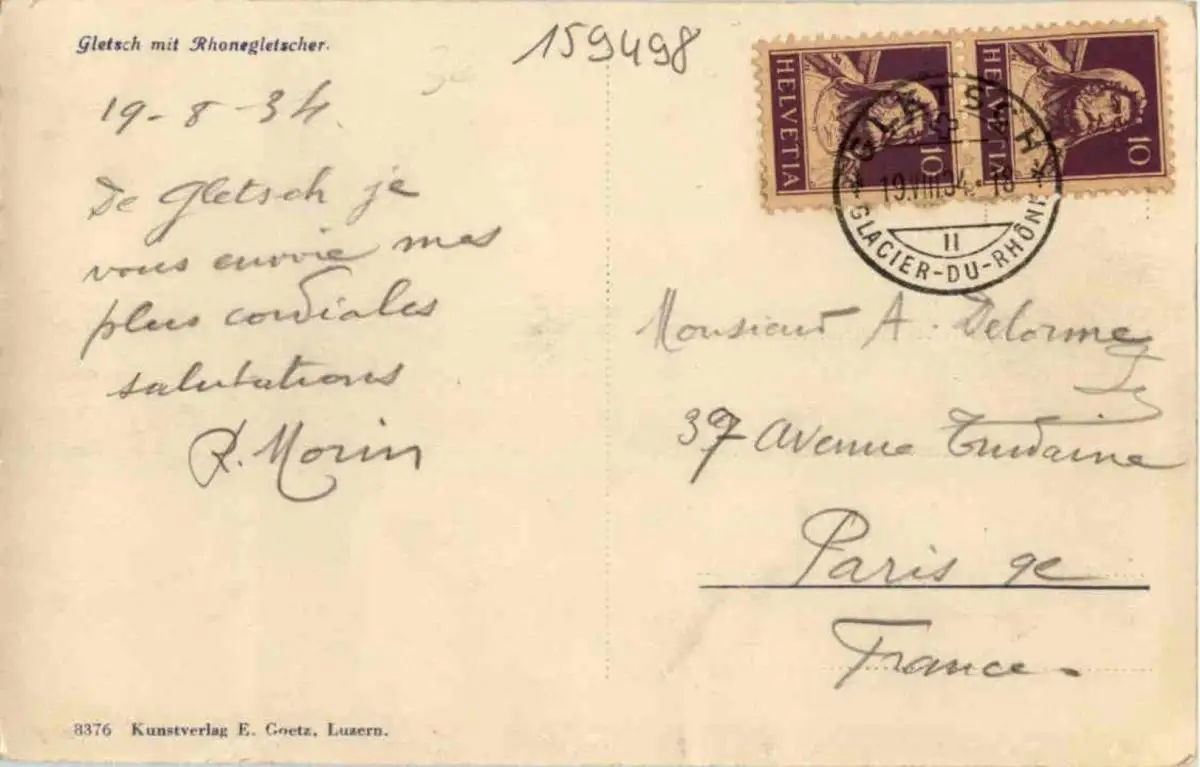 Gletsch mit Rhonegletscher.
159498
19-8-34.
De Gletsch je
vous envoie mes
plus cordiales
salutations
R. Morin
HELVETIA 10
HELVETIA 10
GLETSCH
19.VIII.34.-18
II
GLACIER-DU-RHÔNE
Monsieur A. Delorme
37 Avenue Trudaine
Paris 9e
France.
8376 Kunstverlag E. Goetz, Luzern.